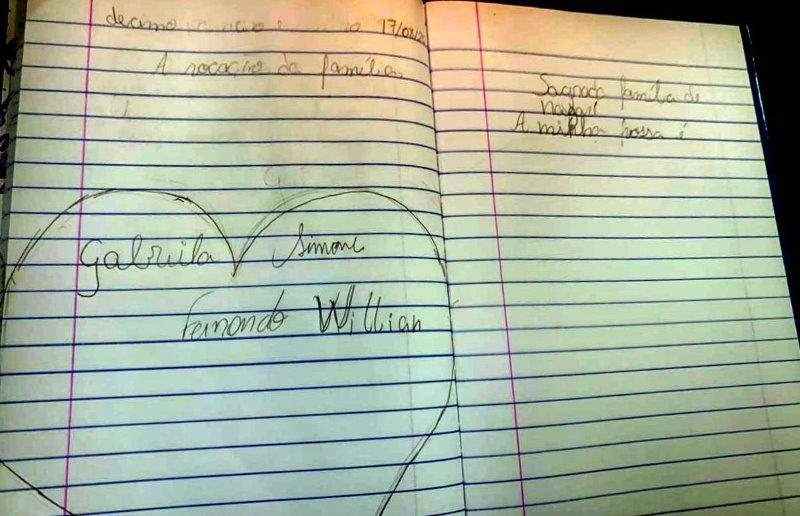 decimo 17/08/20
A vocação da família
Gabriela Simone
Fernando Willian
Sagrada família de
nazaré
A minha é